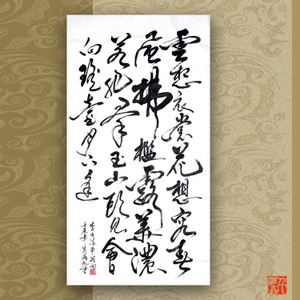 雲想衣裳花想容春
風拂檻露華濃
若非羣玉山頭見會
向瑤臺月下逢
李白清平調